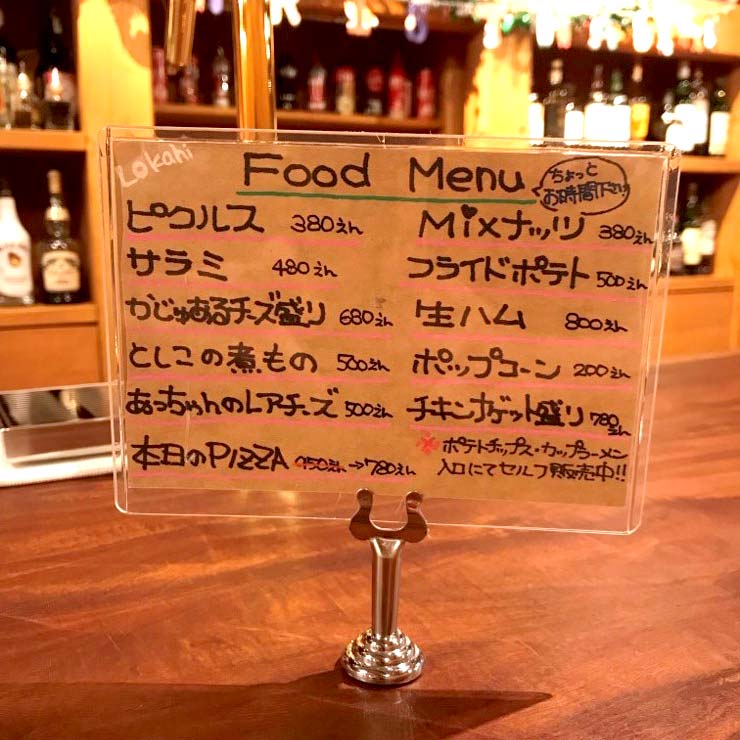 Lokahi
Food Menu
ちょっと
お時間下さい
ピクルス 380えん
サラミ 480えん
かじゅあるチーズ盛り 680えん
としこの煮もの 500えん
あっちゃんのレアチーズ 500えん
本日のPIZZA 950えん→780えん
Mixナッツ 380えん
フライドポテト 500えん
生ハム 800えん
ポップコーン 200えん
チキンナゲット盛り 780えん
※ポテトチップス・カップラーメン
入口にてセルフ販売中!!